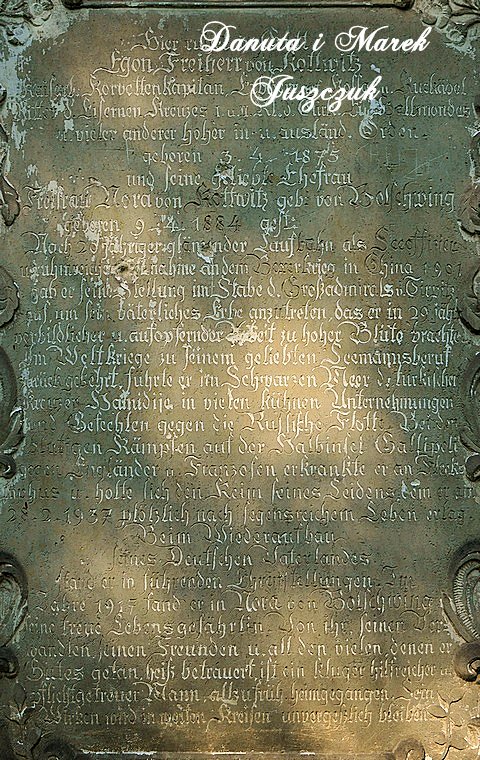 Danuta i Marek
Juszczuk
Hier
Egon Freiherr von Kottwitz
Kaiserl. Korvettenkapitän,
Eisernen Kreuzes I u.
u. vieler anderer hoher in- u. ausländ. Orden.
geboren 3. 4. 1875
und seine geliebte Ehefrau
Freifrau Nora von Kottwitz geb. von Bolschwing
geboren 9. 4. 1884 gest.
Nach 20 jähriger glänzender Laufbahn als Seeoffizier
Teilnahme an dem Boxerkrieg in China 1901
gab er seine Stellung im Stabe d. Großadmirals v. Tirpitz
auf, um sein väterliches Erbe anzutreten, das er in 29 jähr.
vorbildlicher u. aufopfernder Arbeit zu hoher Blüte brachte
Im Weltkriege zu seinem geliebten Seemannsberuf
zurückgekehrt, führte er im Schwarzen Meer d. türkischen
Kreuzer Hamidije in vielen kühnen Unternehmungen
und Gefechten gegen die Russische Flotte. Bei den
blutigen Kämpfen auf der Halbinsel Gallipoli
gegen Engländer u. Franzosen erkrankte er an Fleck-
typhus u. holte sich den Keim seines Leidens, dem er am
2. 1937 plötzlich nach segensreichem Leben erlag.
Beim Wiederaufbau
seines Deutschen Vaterlandes
stand er in führenden Ehrenstellungen. Im
Jahre 1917 fand er in Nora von Bolschwing
seine treue Lebensgefährtin. Von ihr, seinen Ver-
wandten, seinen Freunden u. all den vielen, denen er
Gutes getan, heiß betrauert, ist ein kluger, hilfreicher u.
pflichtgetreuer Mann, allzu früh heimgegangen. Sein
Wirken wird in weiten Kreisen unvergeßlich bleiben.